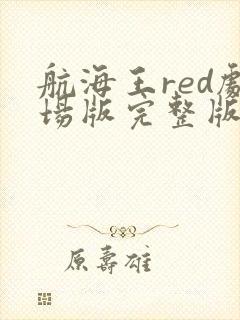 航海王red劇
場版完整版
原壽雄